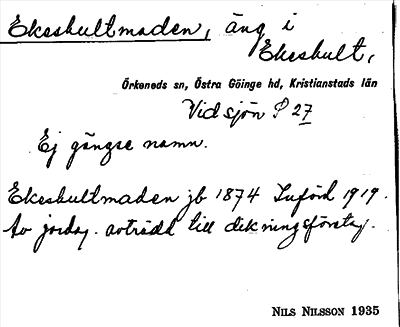 Ekeshultmaden, äng i
Ekeshult,
Örkeneds sn, Östra Göinge hd, Kristianstads län
Vid sjön P 27
Ej gängse namn.
Ekeshultmaden jb 1874 Införd 1919.
Av jordäg. avträdd till dikningsföretag.
NILS NILSSON 1935